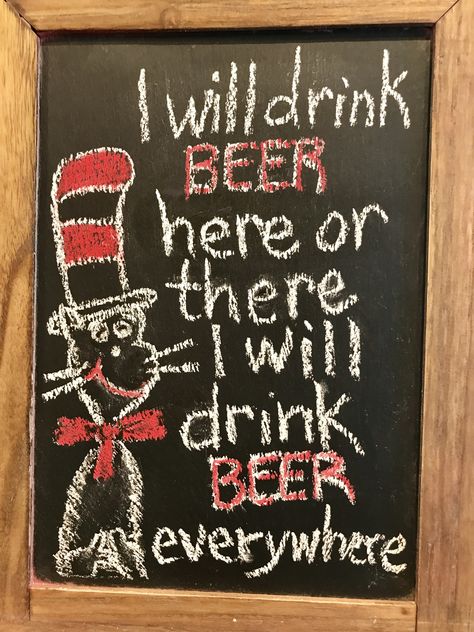 I will drink
BEER
here or
there
I will
drink
BEER
everywhere